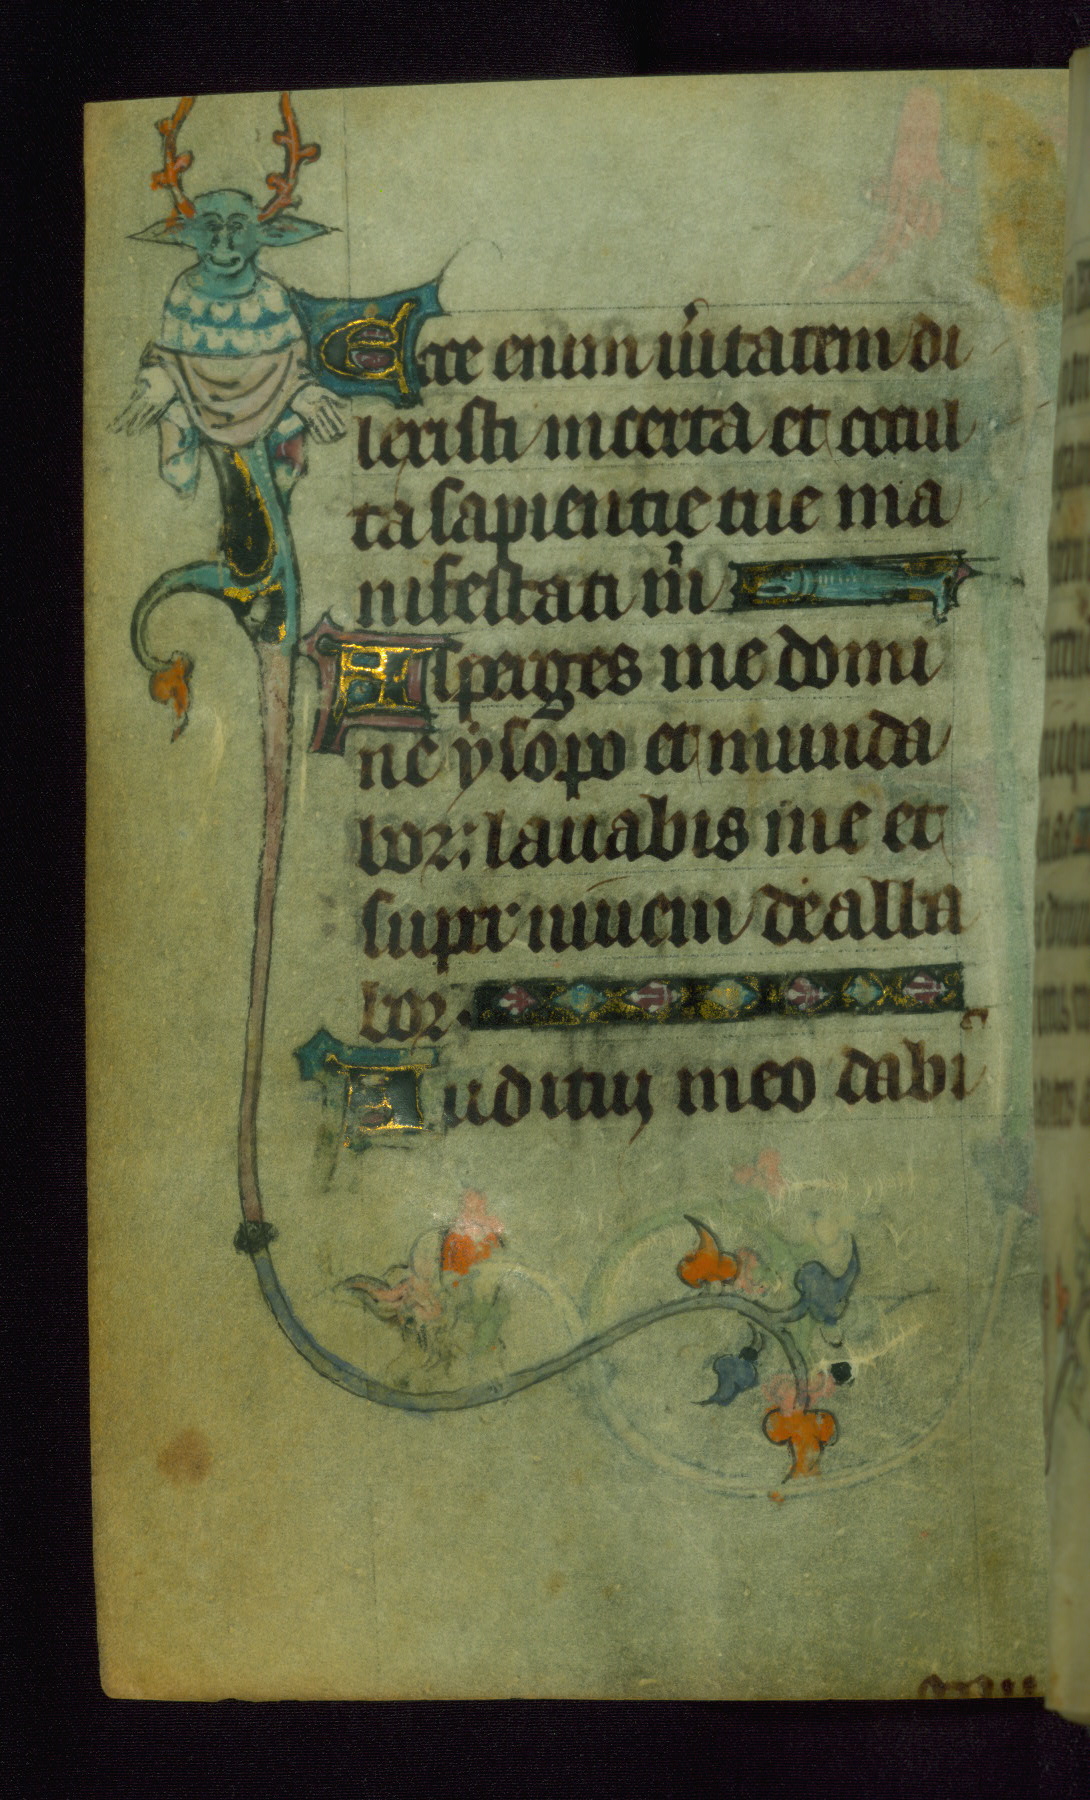 Ecce enim ůitatem di
lexisti incerta et occul
ta sapientie tue ma
nifestasti m̊i
Asperges me domi
ne ẏsopo et munda
bor: lauabis me et
super niuem dealba
bor.
Auditui meo dabi